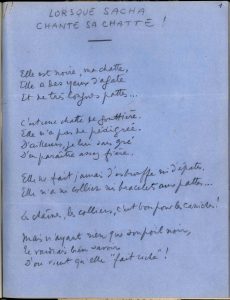 1
LORSQUE SACHA
CHANTE SA CHATTE !
Elle est noire, ma chatte,
Elle a des yeux d'agate
Et de très longues pattes...
C'est une chatte de gouttière.
Elle n'a pas de pédigrée.
D'ailleurs, je lui sais gré
D'en paraître assez fière.
Elle ne fait, jamais d'esbrouffe ni d'épate,
Elle n'a ni collier ni bracelet aux pattes...
La chaîne, les colliers, c'est bon pour les canidés !
Mais n'ayant rien que son poil noir,
Je voudrais bien savoir
D'où vient qu'elle "fait riche" !